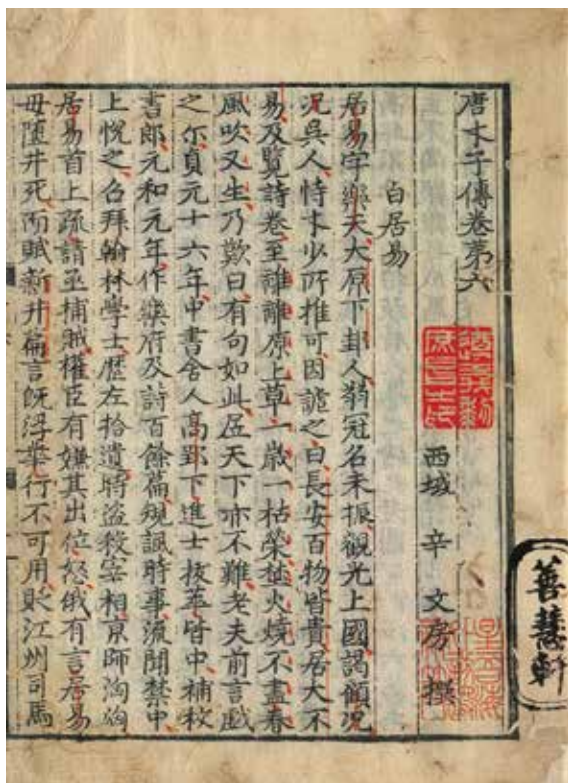 唐才子傳卷第六
西域 辛 文房 撰
白居易
居易字樂天大原下邽人弱冠名未振觀光上國謁顧況
況吳人恃才少所推可因謔之曰長安百物皆貴居大不
易及覽詩卷至離離原上草一歲一枯榮埜火燒不盡春
風吹又生乃歎曰有句如此居天下亦不難老夫前言戲
之尔貞元十六年中書舍人高郢下進士拔萃皆中補校
書郎元和元年作樂府及詩百餘篇規諷時事流聞禁中
上悅之召拜翰林學士歷左拾遺時盜殺宰相京師洶洶
居易首上疏請亟捕賊權臣有嫌其出位怒俄有言居易
母墮井死而賦新井篇言既浮華行不可用貶江州司馬
善慧軒